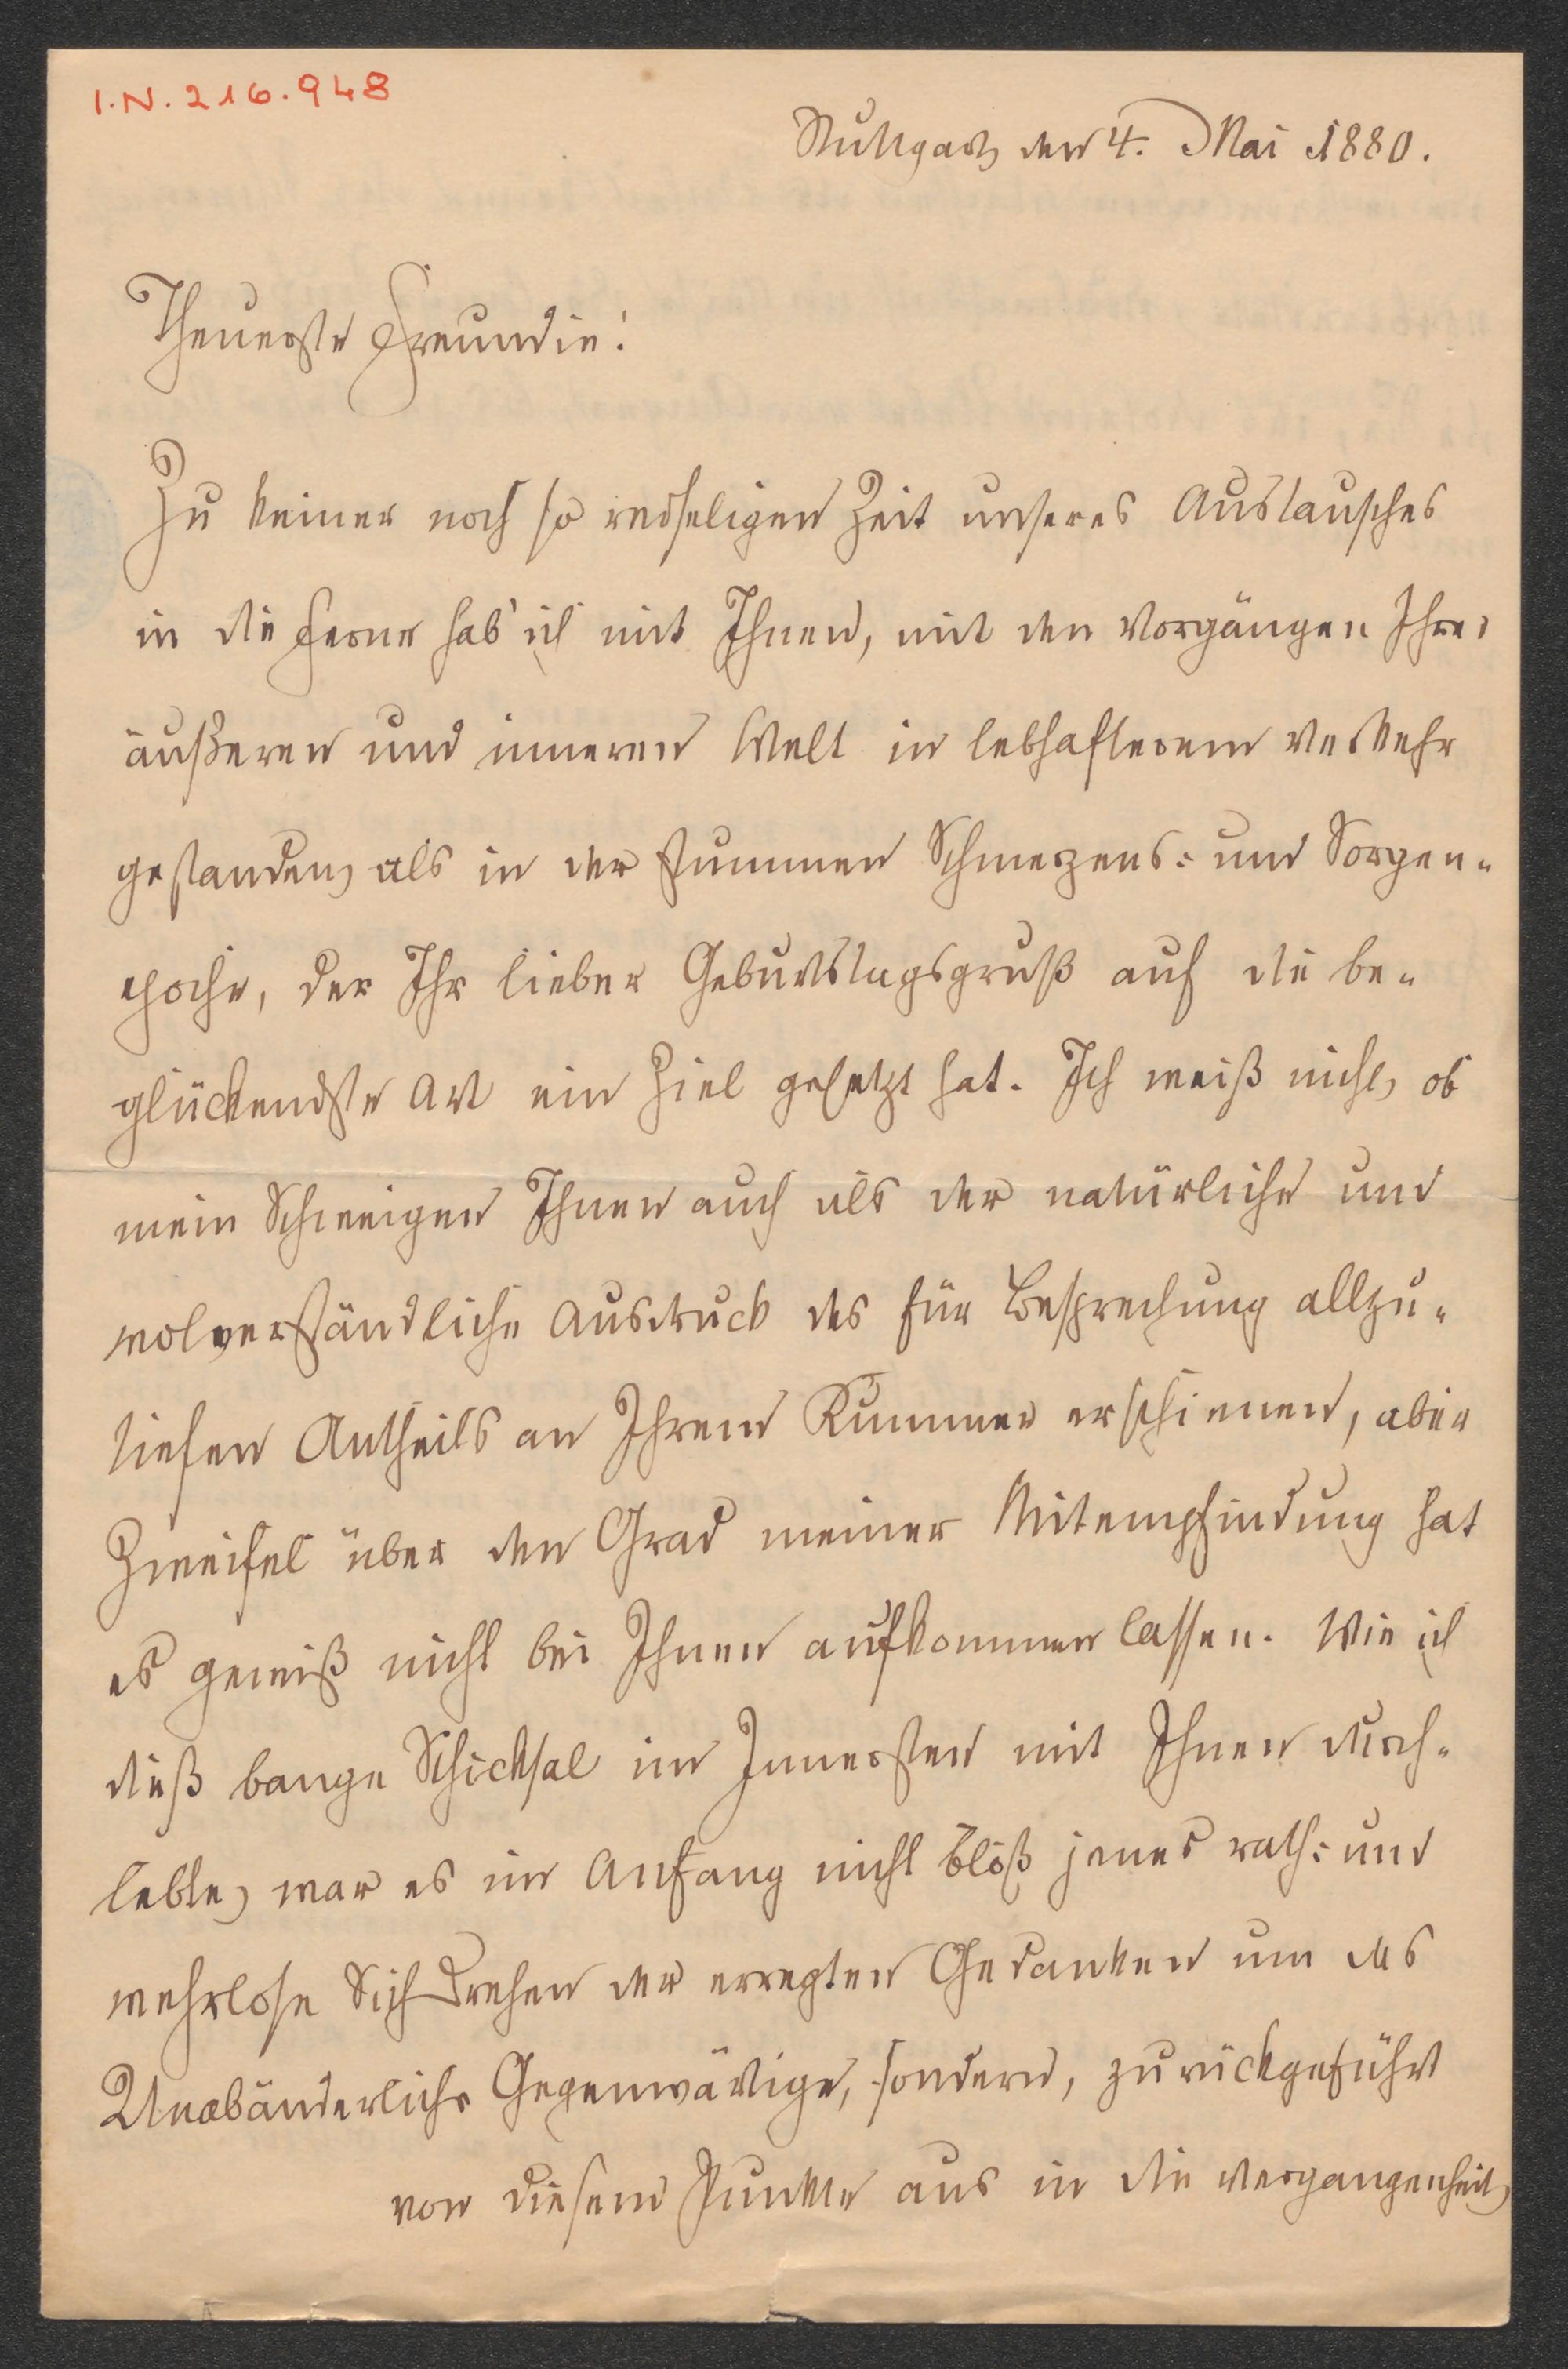 I.N. 216.948
Stuttgart den 4. Mai 1880.
Theuerste Freundin!
Zu keiner noch so redseligen Zeit unseres Austausches
in die Ferne hab' ich mit Ihnen, mit den Vorgängen Ihrer
äußeren und inneren Welt in lebhafterem Verkehr
gestanden, als in der stummen Schmerzens- und Sorgen-
epoche, der Ihr lieber Geburtstagsgruß auf die be-
glückendste Art ein Ziel gesetzt hat. Ich weiß nicht, ob
mein Schweigen Ihnen auch als der natürliche und
wolverständliche Ausdruck des für Besprechung allzu-
tiefen Antheils an Ihrem Kummer erschienen, aber
Zweifel über den Grad meiner Mitempfindung hat
es gewiß nicht bei Ihnen aufkommen lassen. Wie ich
dieß bange Schicksal im Innersten mit Ihnen durch-
lebte, war es im Anfang nicht bloß jenes rath- und
wehrlose Sichdrehen der erregten Gedanken um das
Unabänderliche Gegenwärtige, sondern, zurückgeführt
von diesem Punkte aus in die Vergangenheit,